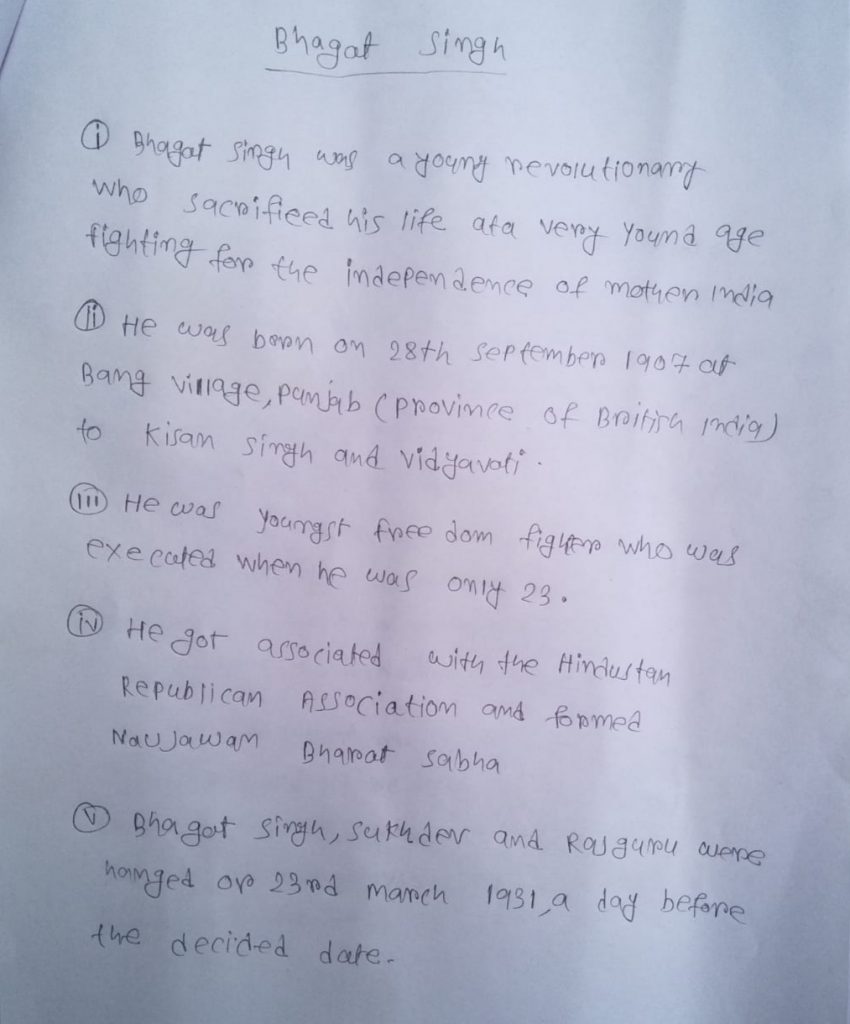 Bhagat Singh
(i) Bhagat Singh was a young revolutionary
who sacrifieed his life at a very Yound age
fighting for the independence of mother India
(ii) He was born on 28th September 1907 at
Bang village, Panjab (province of British India)
to Kisan Singh and Vidyavati.
(iii) He was youngst free dom fighter who was
executed when he was only 23.
(iv) He got associated with the Hindustan
Republican Association and formed
Naujawan Bharat Sabha
(v) Bhagat Singh, Sukhdev and Rajguru were
hanged on 23rd March 1931, a day before
the decided date.